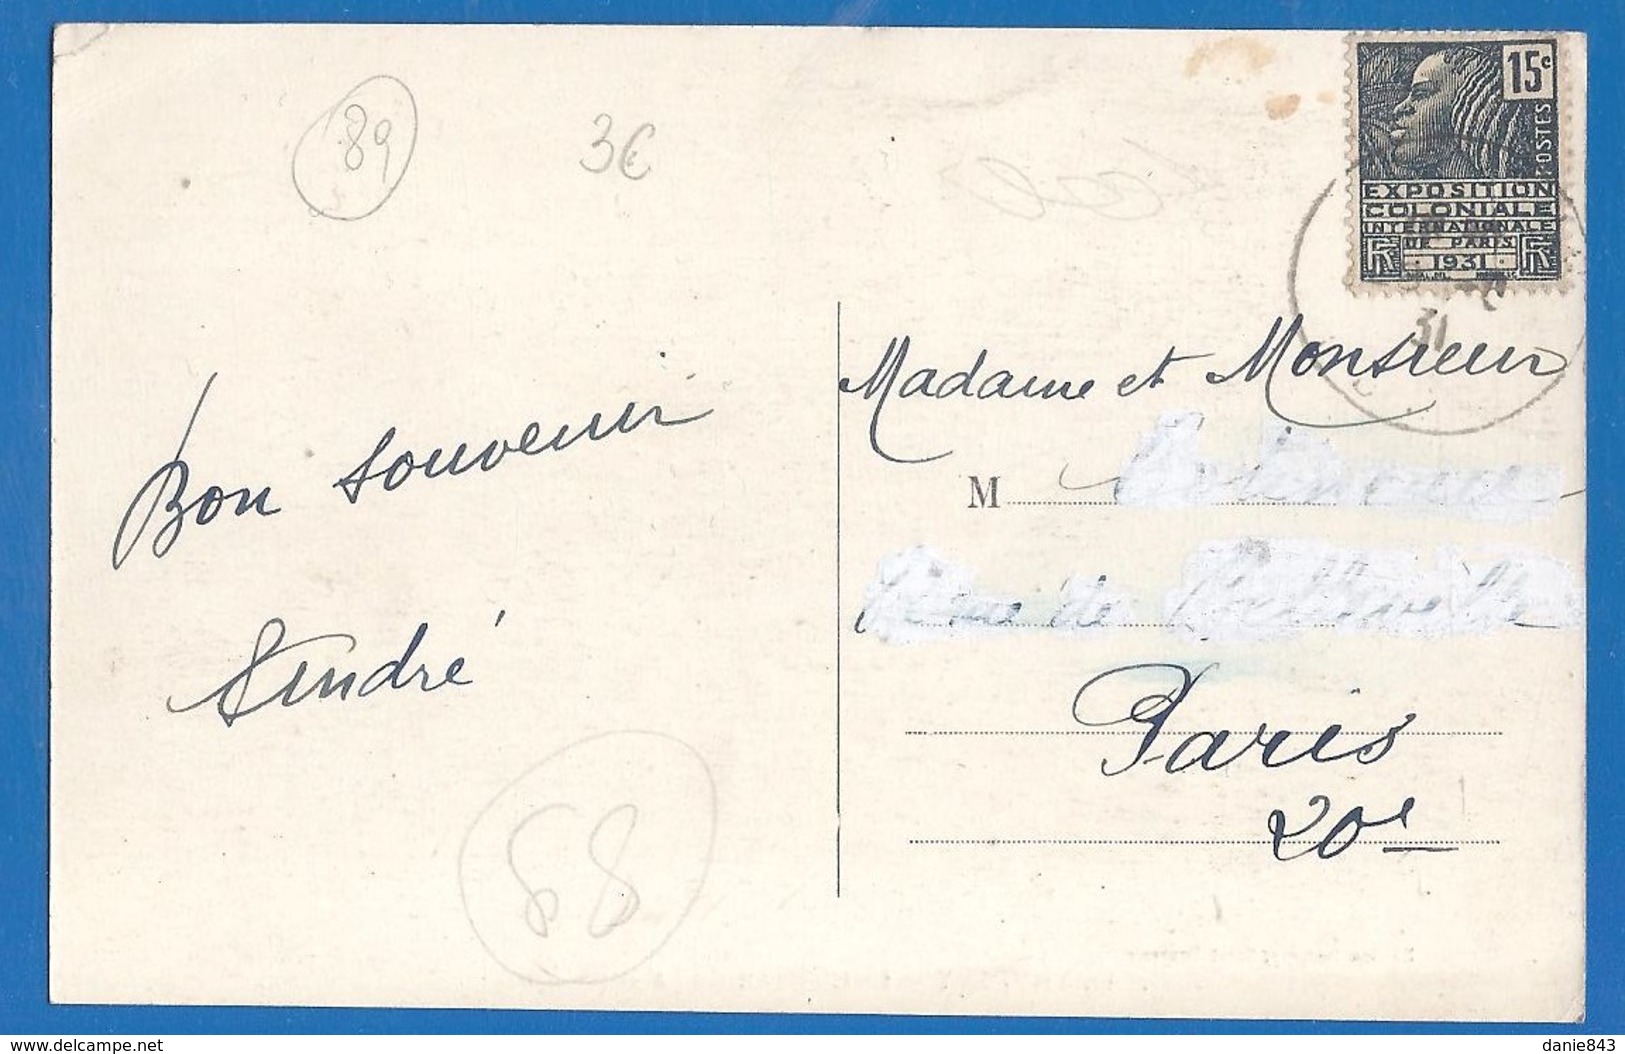 89
3€
15c
POSTES
EXPOSITION
COLONIALE
INTERNATIONALE
DE PARIS
1931
31
Bon souvenir
André
Madame et Monsieur
M
de
Paris
20e
89
www.delcampe.net
danie843